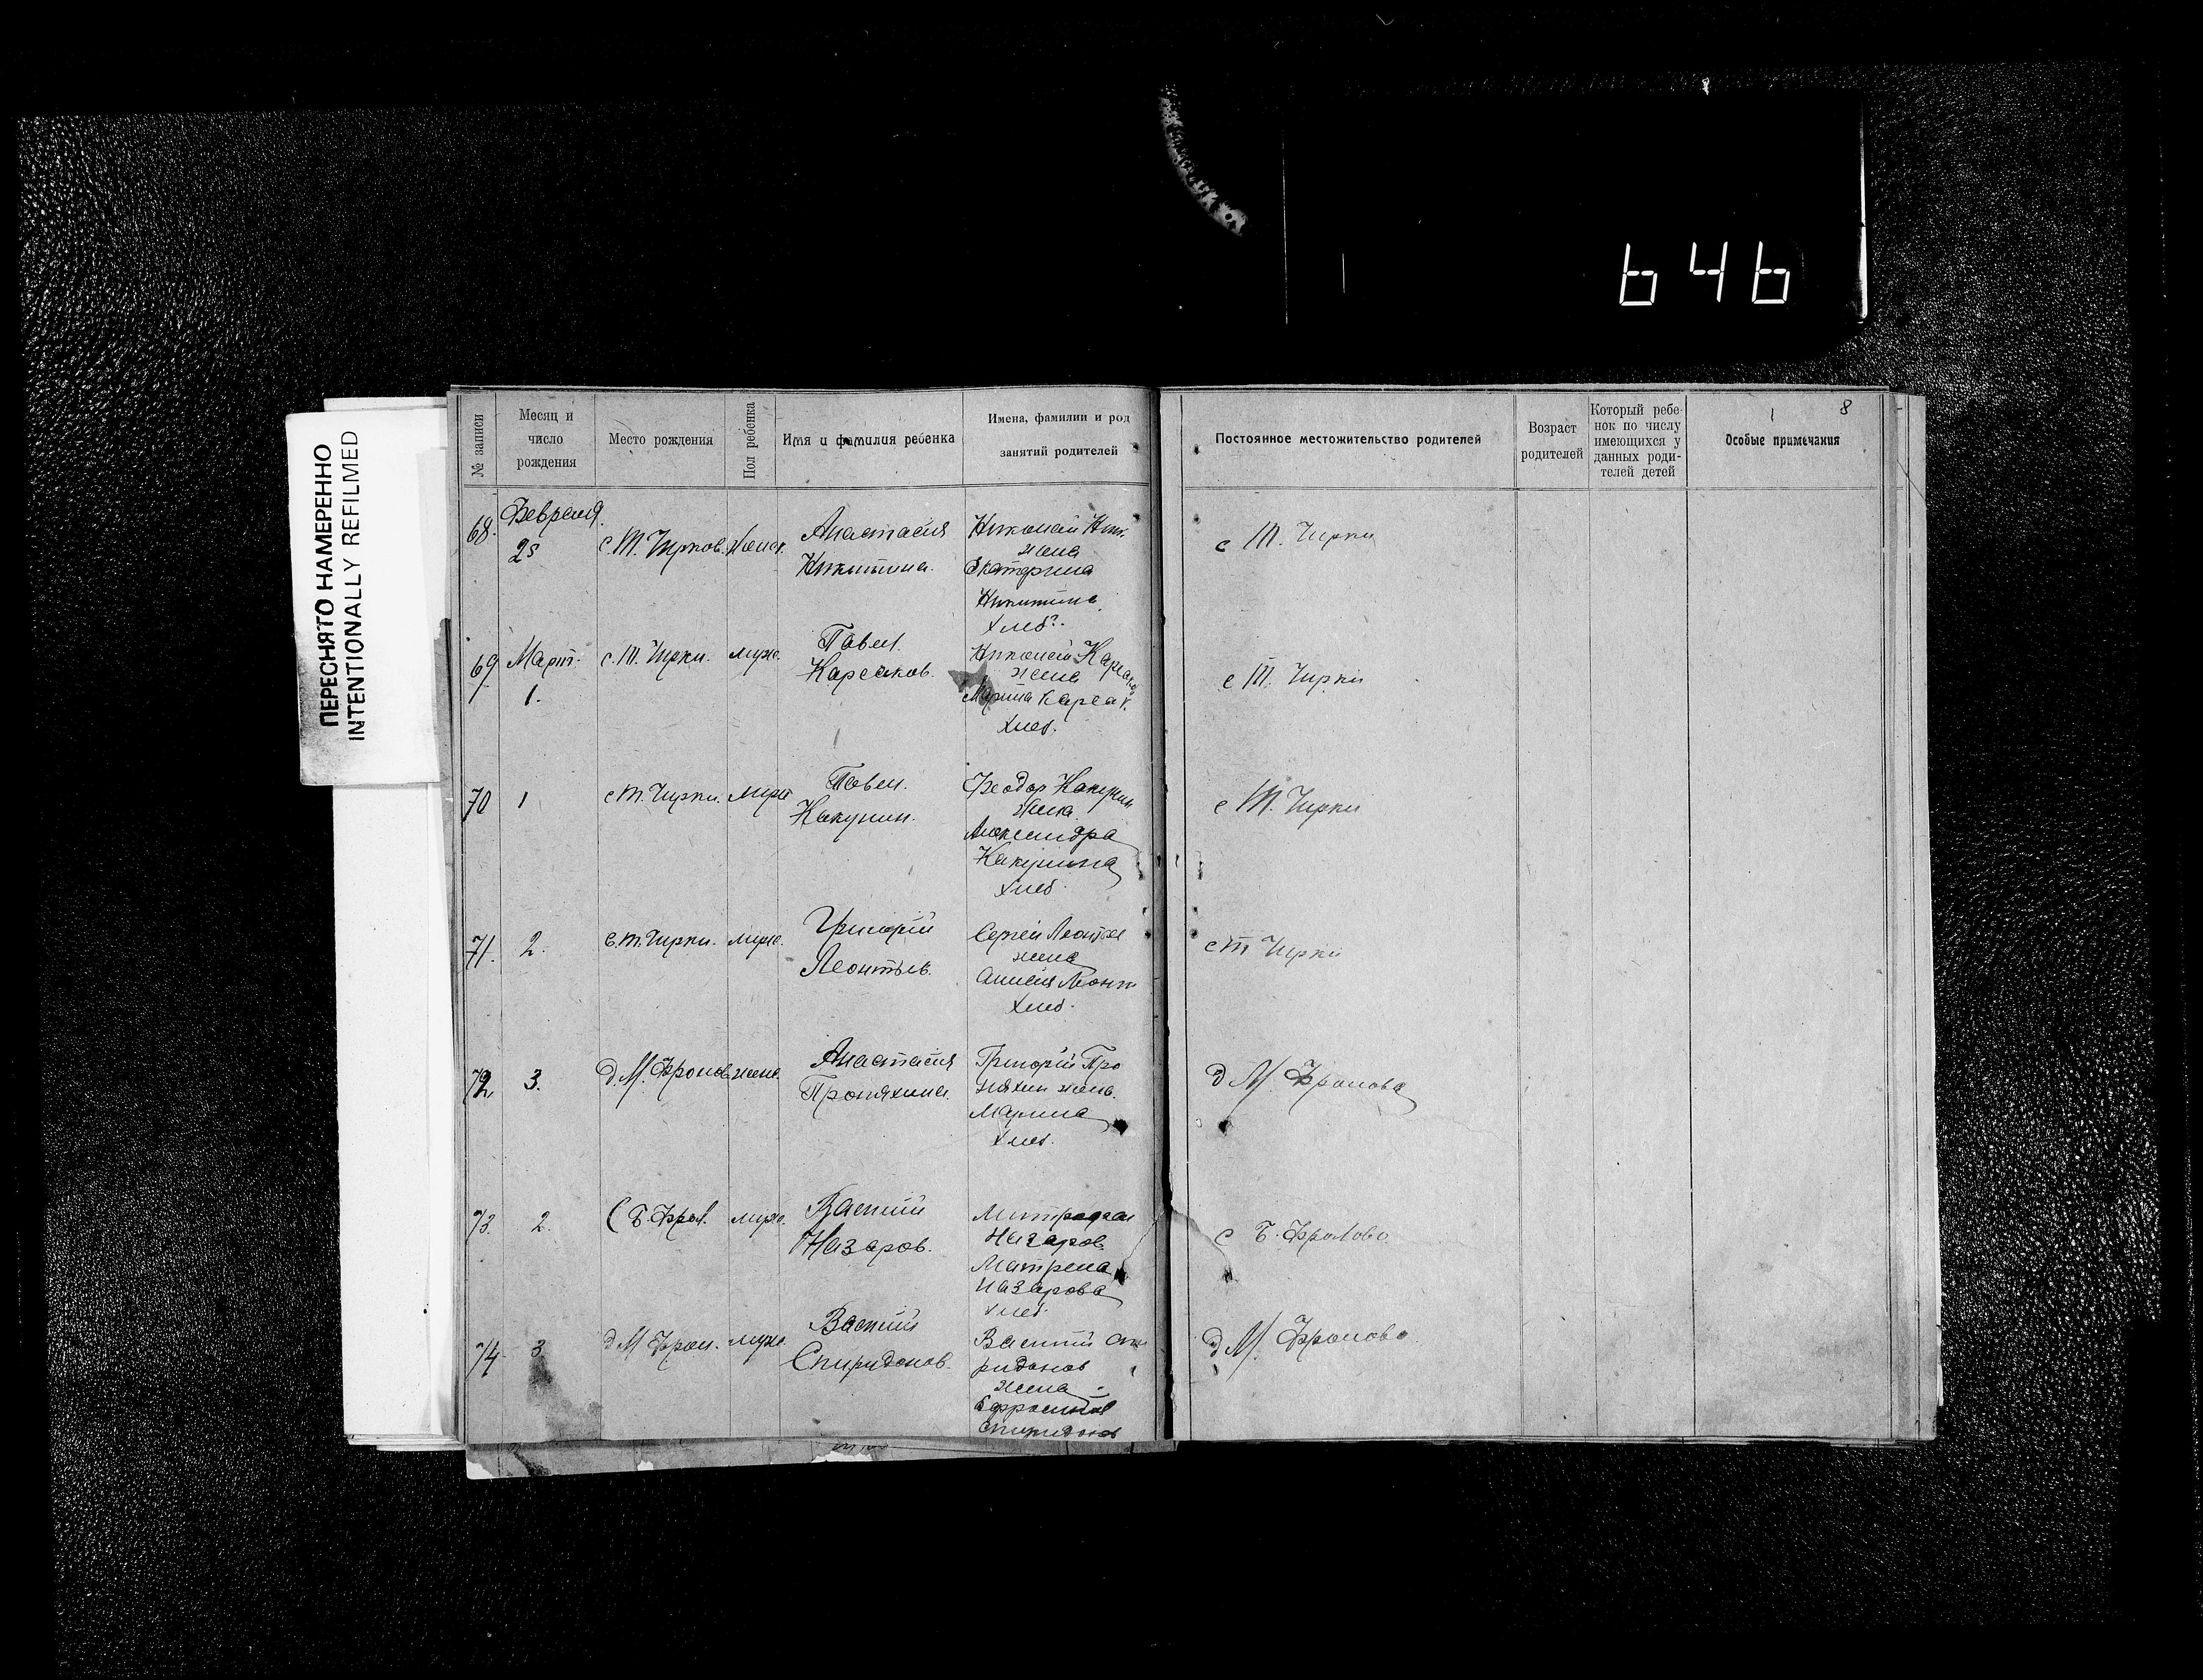 646
ПЕРЕСНЯТО НАМЕРЕННО
INTENTIONALLY REFILMED
№ записи
Месяц и число рождения
Место рождения
Пол ребенка
Имя и фамилия ребенка
Имена, фамилии и род занятий родителей
Постоянное местожительство родителей
Возраст родителей
Который ребенок по числу имеющихся у данных родителей детей
Особые примечания
8
68.
Февраля
25
с. Т. Чирков.
женск.
Анастасия
Никитина.
Николай Ник.
жена
Екатерина
Никитина
хлеб.
с Т. Чирки
69
Март.
1.
с. Т. Чирки.
муж.
Павел.
Карсаков.
Николай Карсаков
жена
Мария Карсак.
хлеб.
с Т. Чирки
70
1
с Т. Чирки.
муж
Павел.
Какунин.
Феодор Какунин
жена
Александра
Какунина
хлеб.
с Т. Чирки
71.
2.
с. Т. Чирки.
муж.
Григорий
Леонтьев.
Сергей Леонтьев
жена
Леонт
хлеб.
с Т Чирки
72.
3.
д. М. Фролов
жена.
Анастасия
Проняхина.
Григорий Про
няхин жена.
Марина
хлеб.
д М. Фролова
73.
2.
С Б. Фрол.
муж.
Василий
Назаров.
Митрофан
Назаров.
Матрена
Назарова
хлеб.
с Б. Фролово
74
3.
д М Фрол.
муж.
Василий
Спиридонов.
Василий Спи
ридонов
жена
Ефросиния
Спиридонов
д М. Фролово.